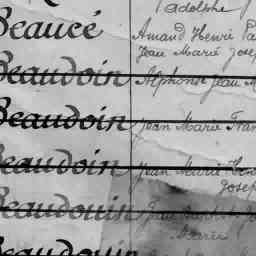 adolphe
Beaucé Amand Henri
Jean Marie Jose
Beaudoin Alphonse Jean M
Beaudoin Jean Marie Fran
Beaudoin Jean Marie
Josep
Beaudouin
Marie
Beaudouin